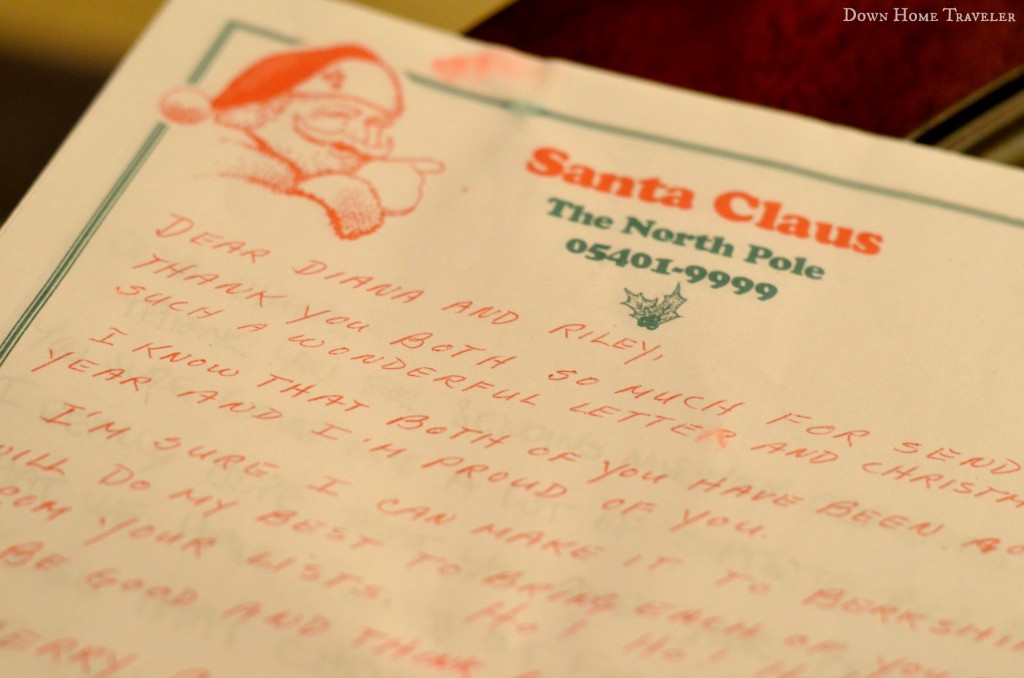 Down Home Traveler
Santa Claus
The North Pole
05401-9999
DEAR DIANA AND RILEY,
THANK YOU BOTH SO MUCH FOR SEND
SUCH A WONDERFUL LETTER AND CHRISTM
I KNOW THAT BOTH OF YOU HAVE BEEN
YEAR AND I'M PROUD OF YOU.
I'M SURE I CAN MAKE IT TO BERKSHIR
WILL DO MY BEST TO BRING EACH OF YOU
ROM YOUR LISTS. HO! HO! H
BE GOOD AND THINK
ERRY